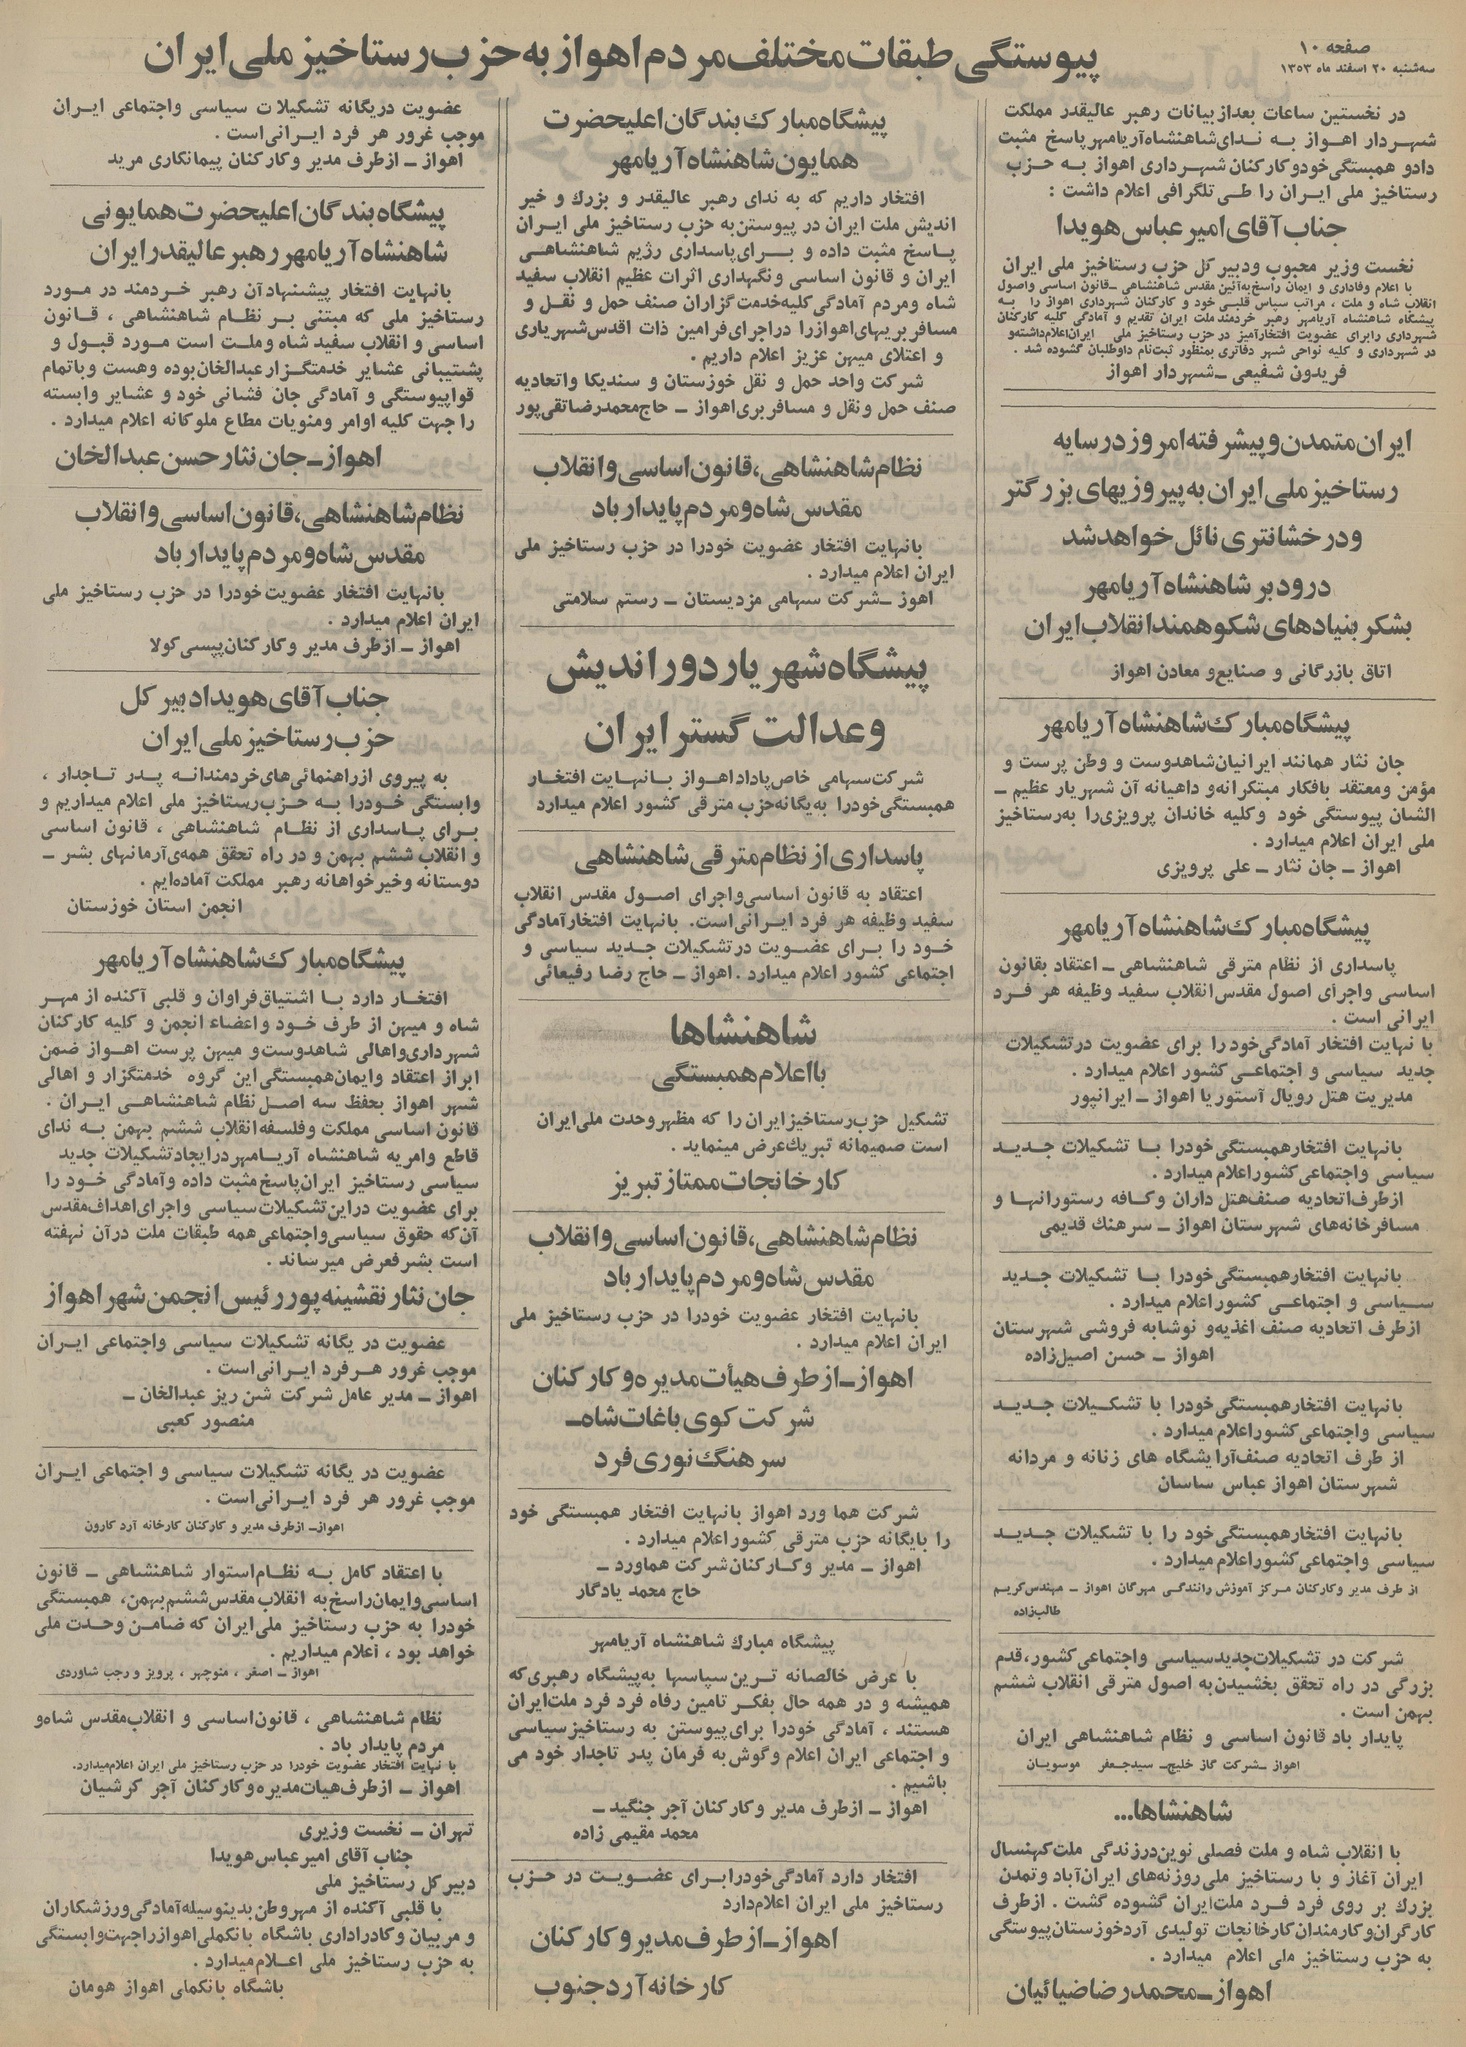 صفحه ۱۰
سه‌شنبه ۲۰ اسفند ماه ۱۳۵۳
پیوستگی طبقات مختلف مردم اهواز به حزب رستاخیز ملی ایران
در نخستین ساعات بعداز بیانات رهبر عالیقدر مملکت
شهردار اهواز به ندای شاهنشاه آریامهر پاسخ مثبت
دادو همبستگی خودو کارکنان شهرداری اهواز به حزب
رستاخیز ملی ایران را طی تلگرافی اعلام داشت :
جناب آقای امیر عباس هویدا
نخست وزیر محبوب ودبیر کل حزب رستاخیز ملی ایران
با اعلام وفاداری و ایمان راسخ به‌آئین مقدس شاهنشاهی ــ قانون اساسی واصول
انقلاب شاه و ملت ، مراتب سپاس قلبی خود و کارکنان شهرداری اهواز را به
پیشگاه شاهنشاه آریامهر رهبر خردمند ملت ایران تقدیم و آمادگی کلیه کارکنان
شهرداری رابرای عضویت افتخارآمیز در حزب رستاخیز ملی ایران‌اعلام‌داشته‌و
در شهرداری و کلیه نواحی شهر دفاتری بمنظور ثبت‌نام داوطلبان گشوده شد .
فریدون شفیعی ــ شهردار اهواز
ایران متمدن و پیشرفته امروز در سایه
رستاخیز ملی ایران به پیروزیهای بزرگتر
ودرخشانتری نائل خواهد شد
درود بر شاهنشاه آریامهر
بشکر بنیادهای شکوهمند انقلاب ایران
اتاق بازرگانی و صنایع و معادن اهواز
پیشگاه مبارک شاهنشاه آریامهر
جان نثار همانند ایرانیان شاهدوست و وطن پرست و
مؤمن ومعتقد بافکار مبتکرانه‌و داهیانه آن شهریار عظیم ــ
الشان پیوستگی خود وکلیه خاندان پرویزی‌را به‌رستاخیز
ملی ایران اعلام میدارد .
اهواز ــ جان نثار ــ علی پرویزی
پیشگاه مبارک شاهنشاه آریامهر
پاسداری از نظام مترقی شاهنشاهی ــ اعتقاد بقانون
اساسی واجرای اصول مقدس انقلاب سفید وظیفه هر فرد
ایرانی است .
با نهایت افتخار آمادگی خود را برای عضویت در تشکیلات
جدید سیاسی و اجتماعی کشور اعلام میدارد .
مدیریت هتل رویال آستوریا اهواز ــ ایرانپور
بانهایت افتخار همبستگی خودرا بـا تشکیلات جـدیـد
سیاسی واجتماعی کشور اعلام میدارد .
ازطرف اتحادیه صنف هتل داران وکافه رستورانها و
مسافر خانه‌های شهرستان اهواز ــ سرهنك قدیمی
بانهایت افتخار همبستگی خودرا بـا تشکیلات جـدید
سیـاسی و اجتماعـی کشور اعلام میدارد .
ازطرف اتحادیه صنف اغذیه‌و نوشابه فروشی شهرستان
اهواز ــ حسن اصیل‌زاده
بانهایت افتخار همبستگی خودرا با تشکـیلات جـدیـد
سیاسی واجتماعی کشور اعلام میدارد .
از طرف اتحادیه صنف آرایشگاه های زنانه و مردانه
شهرستان اهواز عباس ساسان
بانهایت افتخار همبستگی خود را با تشکیلات جـدیـد
سیاسی واجتماعی کشور اعلام میدارد .
از طرف مدیر وکارکنان مرکز آموزش رانندگی مهرگان اهواز ــ مهندس‌کریم
طالب‌زاده
شرکت در تشکیلات جدید سیاسی واجتماعی کشور، قدم
بزرگی در راه تحقق بخشیدن به اصول مترقی انقلاب ششم
بهمن است .
پایدار باد قانون اساسی و نظام شاهنشاهی ایران
اهواز ــ شرکت گاز خلیج ــ سیدجعفر موسویان
شاهنشاها...
با انقلاب شاه و ملت فصلی نوین درزندگی ملت کهنسال
ایران آغاز و با رستاخیز ملی روزنه‌های ایران‌آباد و تمدن
بزرك بر روی فرد فـرد ملت‌ایران گشوده گشت . ازطرف
کارگران‌وکارمندان کارخانجات تولیدی آردخوزستان‌پیوستگی
به حزب رستاخیز ملی اعلام میدارد .
اهواز ــ محمد رضا ضیائیان
پیشگاه مبارک بندگان اعلیحضرت
همایون شاهنشاه آریامهر
افتخار داریم که به ندای رهبر عالیقدر و بزرك و خیر
اندیش ملت ایران در پیوستن به حزب رستاخیز ملی ایران
پـاسخ مثبت داده و بـرای پاسداری رژیم شاهنشاهی
ایران و قانون اساسی ونگهداری اثرات عظیم انقلاب سفید
شاه ومردم آمادگی کلیه خدمت گزاران صنف حمل و نقل و
مسافربریهای اهوازرا دراجرای فرامین ذات اقدس شهریاری
و اعتلای میهن عزیز اعلام داریم .
شرکت واحد حمل و نقل خوزستان و سندیکا واتحادیه
صنف حمل ونقل و مسافربری اهواز ــ حاج محمدرضا تقی‌پور
نظام شاهنشاهی، قانون اساسی و انقلاب
مقدس شاه و مردم پایدار باد
بانهایت افتخار عضویت خودرا در حزب رستاخیز ملی
ایران اعلام میدارد .
اهوز ــ شرکت سهامی مزدیستان ــ رستم سلامتی
پیشگاه شهریار دور اندیش
و عدالت گستر ایران
شرکت سهامی خاص پاداد اهواز بـا نهـایت افتخـار
همبستگی خودرا به‌یگانه حزب مترقی کشور اعلام میدارد
پاسداری از نظام مترقی شاهنشاهی
اعتقاد به قانون اساسی واجرای اصـول مقدس انقلاب
سفید وظیفه هر فرد ایـرانی است. بانهایت افتخار آمادگی
خـود را بـرای عضـویت در تشکیلات جـدید سیـاسی و
اجتماعی کشور اعلام میدارد . اهواز ــ حاج رضا رفیعائی
شاهنشاها
با اعلام همبستگی
تشکیل حزب رستاخیز ایران را که مظهر وحدت ملی ایران
است صمیمانه تبریك عرض مینماید .
کارخانجات ممتاز تبریز
نظام شاهنشاهی، قانون اساسی و انقلاب
مقدس شاه و مردم پایدار باد
بانهایت افتخار عضویت خودرا در حزب رستاخیز ملی
ایران اعلام میدارد .
اهواز ــ از طرف هیأت مدیره و کارکنان
شرکت کوی باغات شاه ــ
سرهنگ نوری فرد
شرکت هما ورد اهواز بانهایت افتخار همبستگی خود
را بایگانه حزب مترقی کشور اعلام میدارد .
اهواز ــ مدیر وکارکنان شرکت هماورد ــ
حاج محمد یادگار
پیشگاه مبارك شاهنشاه آریامهر
با عرض خالصانه ترین سپاسها به‌پیشگاه رهبری‌که
همیشه و در همه حال بفکر تامین رفاه فرد فرد ملت‌ایران
هستند ، آمادگی خودرا برای پیوستن به رستاخیز سیاسی
و اجتماعی ایران اعلام وگوش به فرمان پدر تاجدار خود می
باشیم .
اهواز ــ ازطرف مدیر وکارکنان آجر جنگید ــ
محمد مقیمی زاده
افتخار دارد آمادگی خودرا برای عضـویـت در حـزب
رستاخیز ملی ایران اعلام‌دارد
اهواز ــ از طرف مدیر و کارکنان
کارخانه آرد جنوب
عضویت دریگانه تشکیلات سیاسی واجتماعی ایـران
موجب غرور هر فرد ایـرانی است .
اهواز ــ ازطرف مدیر وکارکنان پیمانکاری مرید
پیشگاه بندگان اعلیحضرت همایونی
شاهنشاه آریامهر رهبر عالیقدر ایران
بانهایت افتخار پیشنهاد آن رهبر خردمند در مورد
رستاخیز ملی که مبتنی بر نظام شاهنشاهی ، قـانون
اساسی و انقلاب سفید شاه وملت است مورد قبول و
پشتیبانی عشایر خدمتگزار عبدالخان بوده وهست وباتمام
قواپیوستگی و آمادگی جان فشانی خود و عشایر وابسته
را جهت کلیه اوامر ومنویات مطاع ملوکانه اعلام میدارد .
اهواز ــ جان نثار حسن عبدالخان
نظام شاهنشاهی، قانون اساسی و انقلاب
مقدس شاه و مردم پایدار باد
بانهایت افتخار عضویت خودرا در حزب رستاخیز ملی
ایران اعلام میدارد .
اهواز ــ ازطرف مدیر وکارکنان پپسی کولا
جناب آقای هویدا دبیر کل
حزب رستاخیز ملی ایران
به پیروی ازراهنمائی‌های خردمندانـه پـدر تـاجدار ،
وابستگی خـودرا بـه حـزب رستاخیز ملی اعلام میداریم و
بـرای پـاسداری از نظـام شاهنشاهی ، قانون اساسی
و انقلاب ششم بهمن و در راه تحقق همه‌ی آرمانهای بشر ــ
دوستانه وخیرخواهانه رهبر مملکت آماده‌ایم .
انجمن استان خوزستان
پیشگاه مبارک شاهنشاه آریامهر
افتخـار دارد بـا اشتیاق فراوان و قلبی آکنده از مهـر
شاه و میهن از طرف خـود واعضاء انجمن و کلیه کارکنان
شهرداری واهالی شاهدوست و میهن پرست اهـواز ضمن
ابراز اعتقاد وایمان همبستگی این گروه خدمتگزار و اهالی
شهر اهواز بحفظ سه اصـل نظام شاهنشاهـی ایران .
قانون اساسی مملکت وفلسفه انقلاب ششم بهمن بـه ندای
قاطع وامریه شاهنشاه آریامهر درایجاد تشکیلات جدید
سیـاسی رستاخیز ایران پاسخ مثبت داده وآمادگی خـود را
برای عضویت دراین تشکیلات سیاسی واجرای اهداف مقدس
آن‌که حقوق سیاسی واجتماعی همه طبقات ملت درآن نهفته
است بشرفعرض میرساند .
جان نثار نقشینه پور رئیس انجمن شهر اهواز
عضـویت در یگانه تشکیلات سیاسی واجتماعی ایـران
موجب غرور هـر فرد ایرانی است .
اهواز ــ مدیر عامل شرکت شن ریز عبدالخان ــ
منصور کعبی
عضویت در یگانه تشکیلات سیاسی و اجتماعی ایران
موجب غرور هر فرد ایرانی است .
اهواز ــ ازطرف مدیر و کارکنان کارخانه آرد کارون
با اعتقاد کامل بـه نظـام استوار شاهنشاهی ــ قانون
اساسی وایمان راسخ به انقلاب مقدس ششم بهمن، همبستگی
خودرا به حزب رستاخیز ملی ایران که ضامن وحدت ملی
خواهد بود ، اعلام میداریم .
اهواز ــ اصغر ، منوچهر ، پرویز و رجب شاوردی
نظام شاهنشاهی ، قانون اساسی و انقلاب مقدس شاه‌و
مردم پایدار باد .
با نهایت افتخار عضویت خودرا در حزب رستاخیز ملی ایران اعلام‌میدارد.
اهـواز ــ ازطرف هیات مدیره وکارکنان آجر کرشیان
تهران ــ نخست وزیری
جناب آقای امیرعباس هویدا
دبیر کل رستاخیز ملی
با قلبی آکنده از مهر وطن بدینوسیله آمادگی ورزشکاران
و مربیان وکادراداری باشگاه بانکملی اهوازراجهت وابستگی
به حزب رستاخیز ملی اعـلام میدارد .
باشگاه بانکملی اهواز هومان